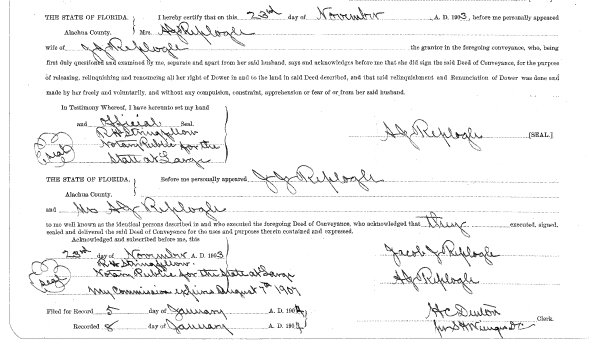 THE STATE OF FLORIDA. I hereby certify that on this 23rd day of November A. D. 1903, before me personally appeared
Alachua County. Mrs. A J Replogle
wife of J J Replogle the grantor in the foregoing conveyance, who, being
first duly questioned and examined by me, separate and apart from her said husband, says and acknowledges before me that she did sign the said Deed of Conveyance, for the purpose
of releasing, relinquishing and renouncing all her right of Dower in and to the land in said Deed described, and that said relinquishment and Renunciation of Dower was done and
made by her freely and voluntarily, and without any compulsion, constraint, apprehension or fear of or from her said husband.
In Testimony Whereof, I have hereunto set my hand
and official Seal.
R H Stringfellow
Notary Public for the
State at Large
Seal
A J Replogle [SEAL.]
THE STATE OF FLORIDA. Before me personally appeared J J Replogle
Alachua County.
and Mrs A J Replogle
to me well known as the identical persons described in and who executed the foregoing Deed of Conveyance, who acknowledged that they executed, signed,
sealed and delivered the said Deed of Conveyance for the uses and purposes therein contained and expressed.
Acknowledged and subscribed before me, this
23rd day of November A. D. 1903
R H Stringfellow
Notary Public for the State at Large
My Commission expires August 7th 1907
Seal
Jacob J Replogle
A J Replogle
Filed for Record 5 day of January A. D. 190
Recorded 8 day of January A. D. 190
H C Denton Clerk.